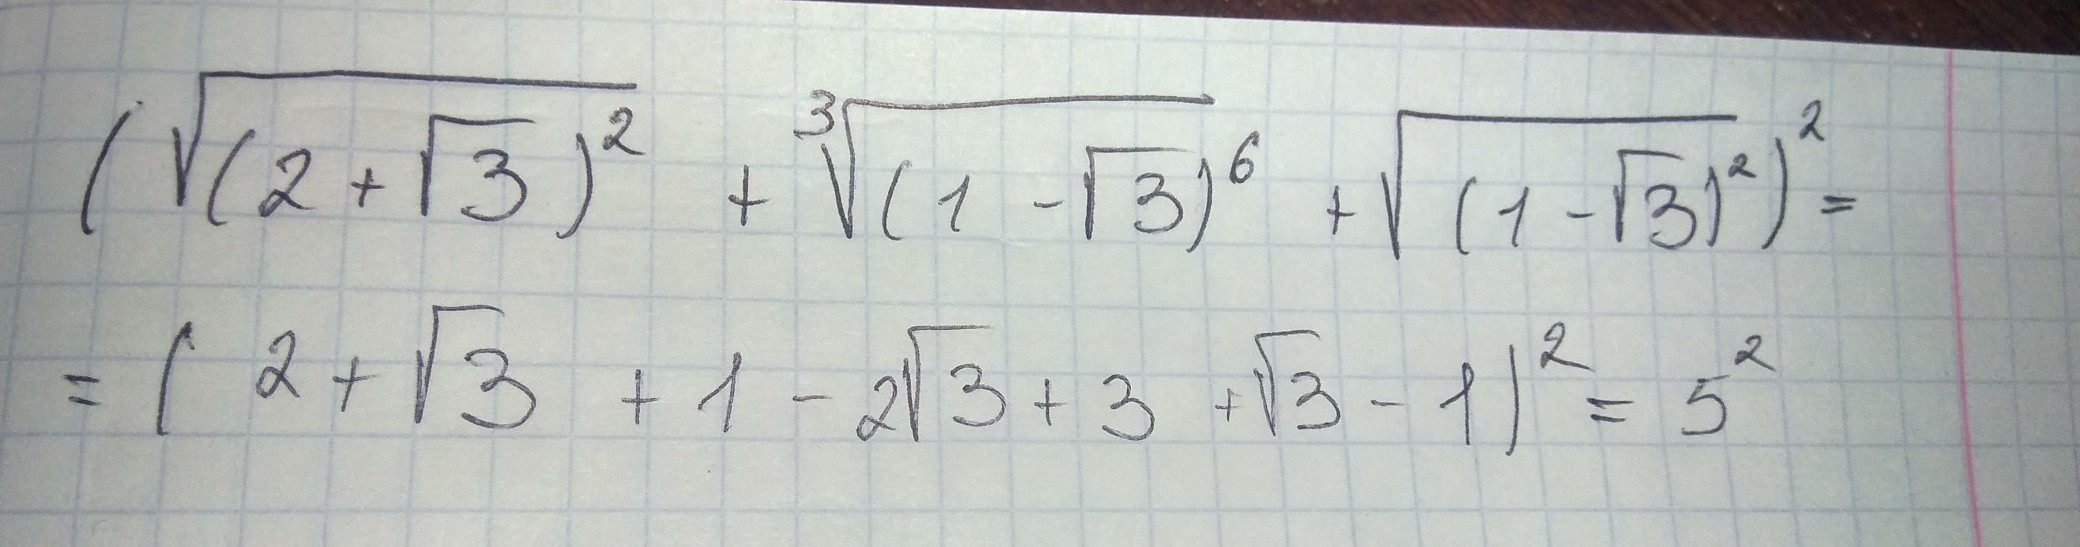 (√(2+√3)² + ³√(1-√3)⁶ + √(1-√3)²)² =
= (2+√3 + 1 - 2√3 + 3 + √3 - 1)² = 5²